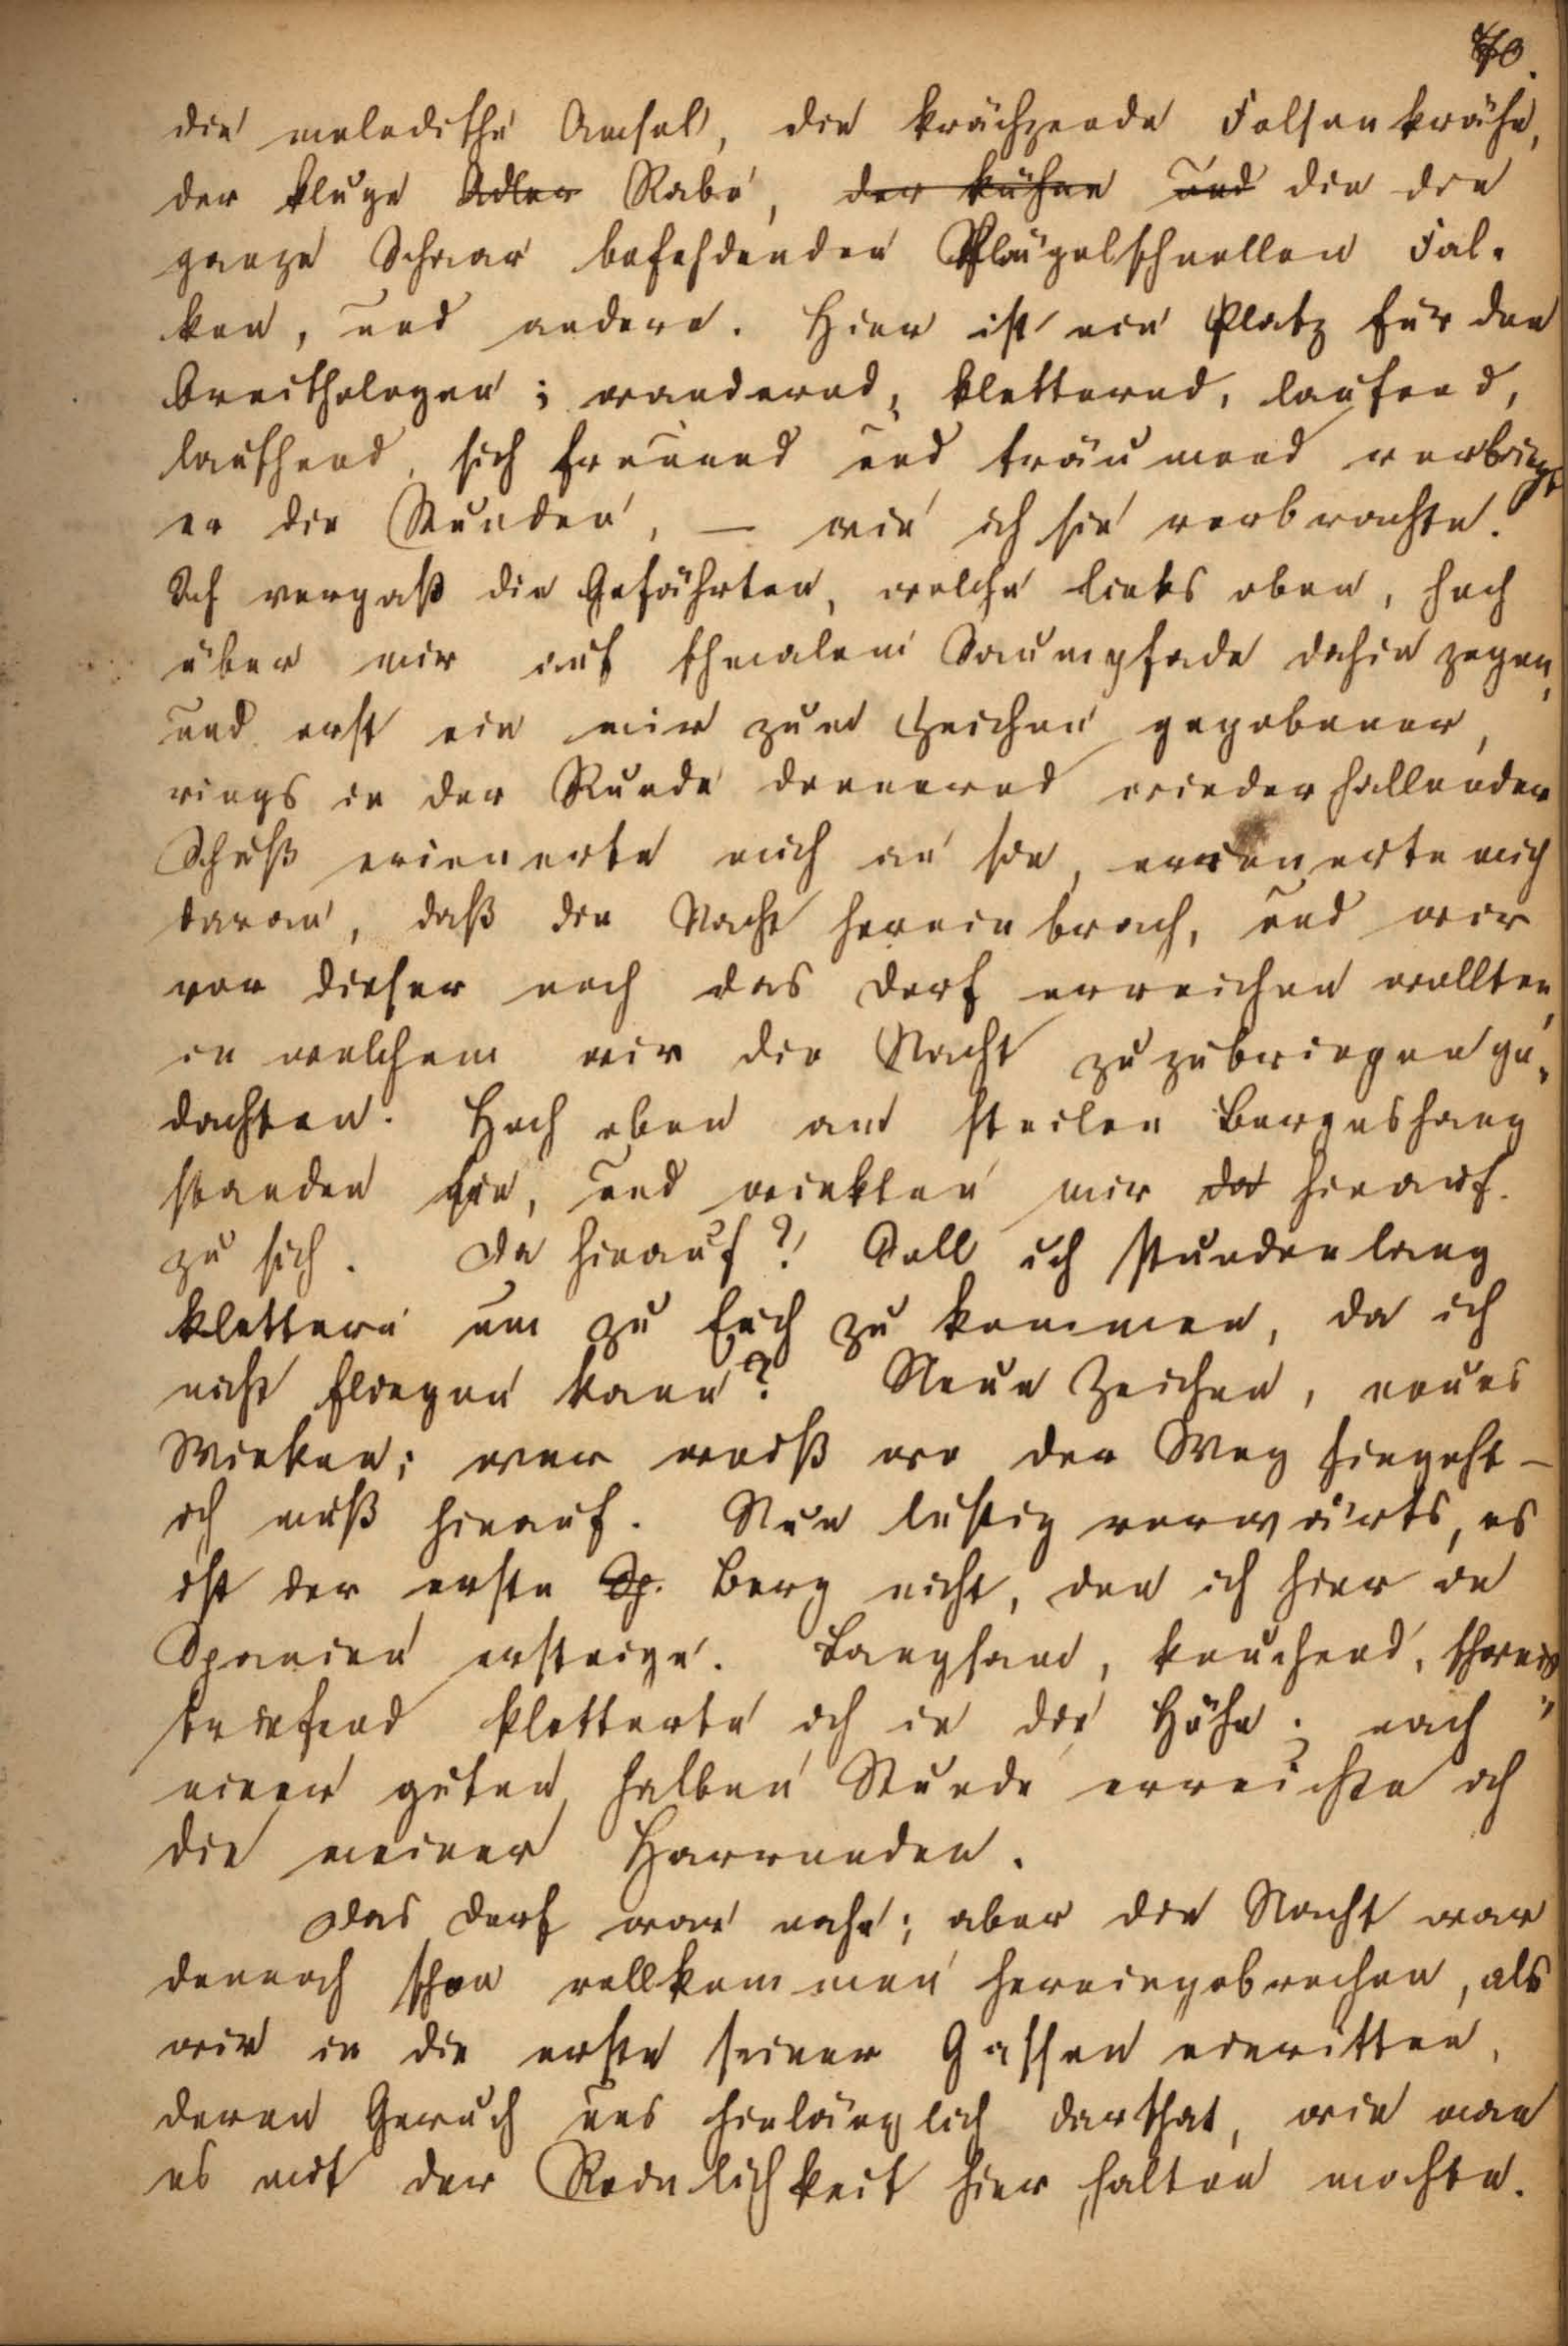 70.
die melodische Amsel, die krächzende Felsenkrähe,
der kluge Adler Rabe, der kühne und die die
ganze Schaar befehdenden Flügelschnellen Fal-
ken, und andere. Hier ist ein Platz für den
Ornithologen; wandernd, kletternd, laufend,
lauschend, sich freuend und träumend verbringt
er die Stunden, — wie ich sie verbrachte.
Ich vergaß die Gefährten, welche links oben, hoch
über mir auf schmalem Saumpfade dahin zogen,
und erst ein mir zum Zeichen gegebener,
rings in der Runde donnernd wiederhallender
Schuß erinnerte mich an sie, erinnerte mich
daran, daß die Nacht hereinbrach, und wir
vor dieser noch das Dorf erreichen wollten,
in welchem wir die Nacht zuzubringen ge-
dachten. Hoch oben am steilen Bergeshang
standen sie, und winkten mir da hinauf
zu sich. Da hinauf? Soll ich stundenlang
klettern um zu Euch zu kommen, da ich
nicht fliegen kann? Neue Zeichen, neues
Winken; wer weiß wo der Weg hingeht —
ich muß hinauf. Nun lustig vorwärts, es
ist der erste Sp. Berg nicht, den ich hier in
Spanien ersteige. Langsam, keuchend, schweiß-
triefend kletterte ich in die Höhe; nach
einer guten halben Stunde erreichte ich
die meiner Harrenden.
Das Dorf war nahe; aber die Nacht war
dennoch schon vollkommen hereingebrochen, als
wir in die erste seiner Gassen einritten,
deren Geruch uns hinlänglich darthat, wie man
es mit der Reinlichkeit hier halten mochte.